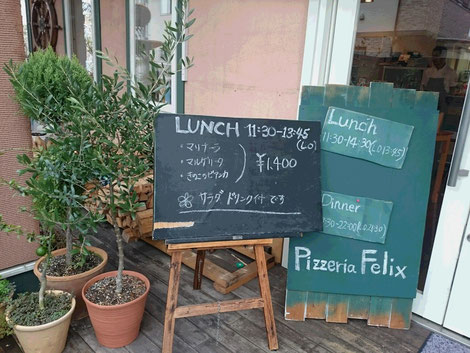 LUNCH 11:30-13:45
(LO)
・マリナーラ
・マルゲリータ
・きのこのビアンカ
¥1,400
サラダ ドリンク付です
Lunch
11:30-14:30(LO13:45)
Dinner
:30-22:00(LO21:30)
Pizzeria Felix